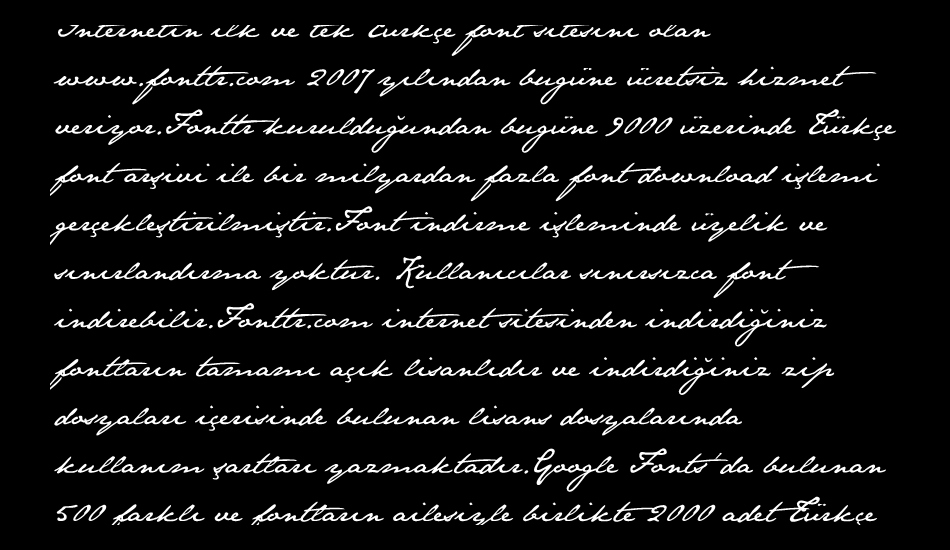 İnternetin ilk ve tek Türkçe font sitesini olan
www.fonttr.com 2007 yılından bugüne ücretsiz hizmet
veriyor.Fonttr kurulduğundan bugüne 9000 üzerinde Türkçe
font arşivi ile bir milyardan fazla font download işlemi
gerçekleştirilmiştir.Font indirme işleminde üyelik ve
sınırlandırma yoktur. Kullanıcılar sınırsızca font
indirebilir.Fonttr.com internet sitesinden indirdiğiniz
fontların tamamı açık lisanlıdır ve indirdiğiniz zip
dosyaları içerisinde bulunan lisans dosyalarında
kullanım şartları yazmaktadır.Google Fonts'da bulunan
500 farklı ve fontların ailesiyle birlikte 2000 adet Türkçe